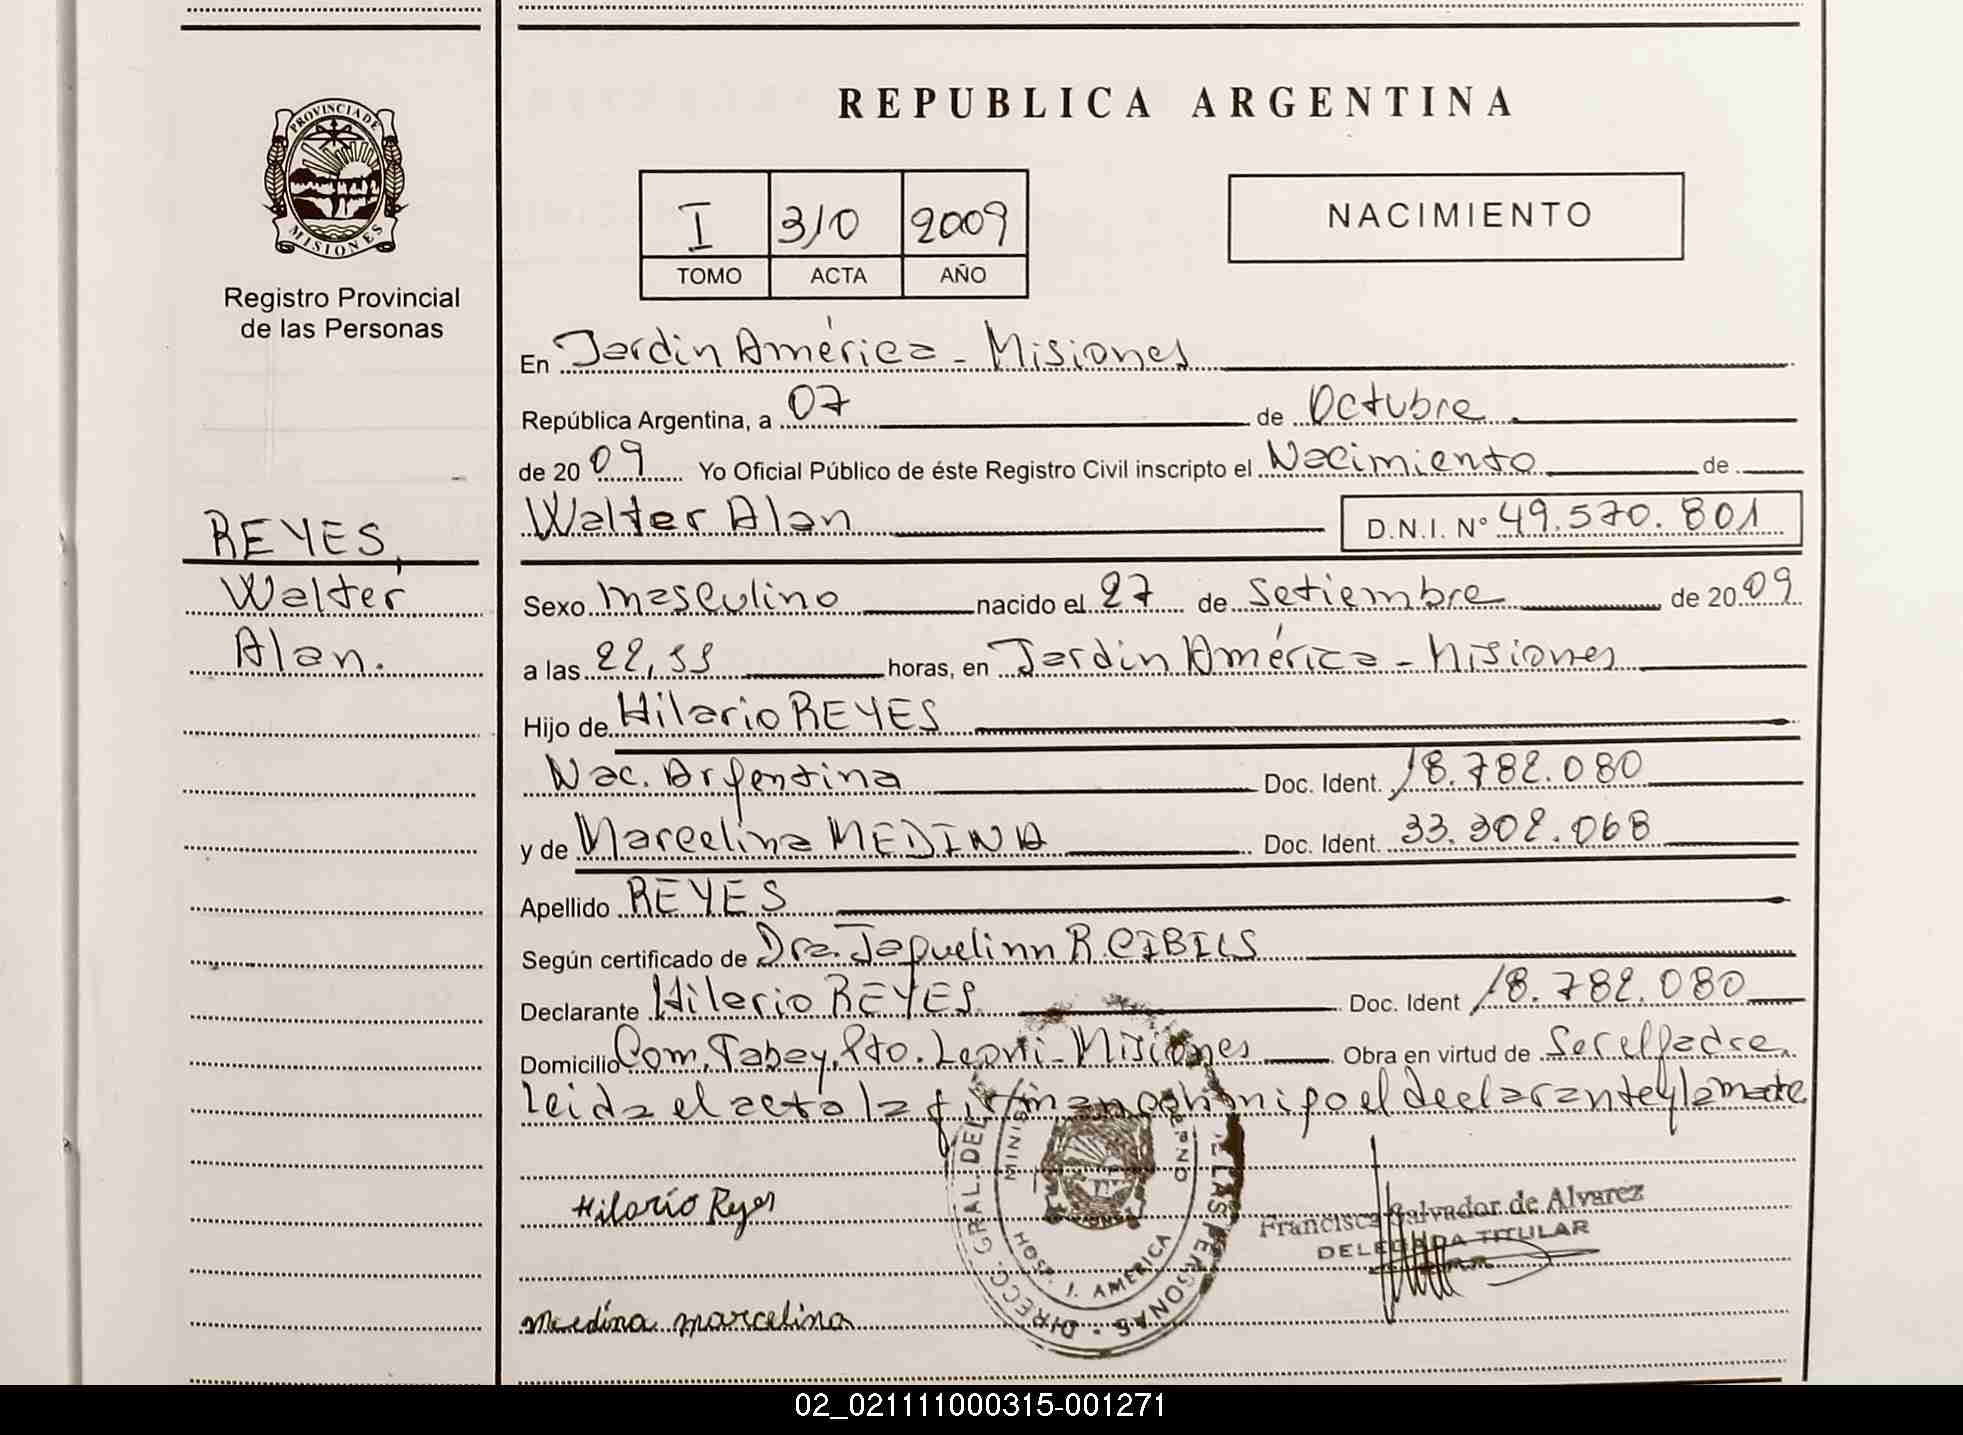 PROVINCIA DE
MISIONES
Registro Provincial
de las Personas
REYES,
Walter
Alan.
REPUBLICA ARGENTINA
I 310 2009
TOMO ACTA AÑO
NACIMIENTO
En Jardin América - Misiones
República Argentina, a 07 de Octubre
de 20 09 Yo Oficial Público de éste Registro Civil inscripto el Nacimiento de
Walter Alan D.N.I. N° 49.570.801
Sexo masculino nacido el 27 de Setiembre de 20 09
a las 22,55 horas, en Jardin América - Misiones
Hijo de Hilario REYES
Nac. Argentina Doc. Ident. 18.782.080
y de Marcelina MEDINA Doc. Ident. 33.302.068
Apellido REYES
Según certificado de Dra. Jaquelinn R. CIBILS
Declarante Hilario REYES. Doc. Ident 18.782.080
Domicilio Com. Tabay, Pto. Leoni - Misiones Obra en virtud de Ser el padre
Leida el acta la firman conmigo el declarante y la madre
Hilario Reyes
Medina marcelina
DIRECC. GRAL. DEL DE LAS PERSONAS
HOSP. J. AMERICA
Francisca Salvador de Alvarez
DELEGADA TITULAR
02_021111000315-001271